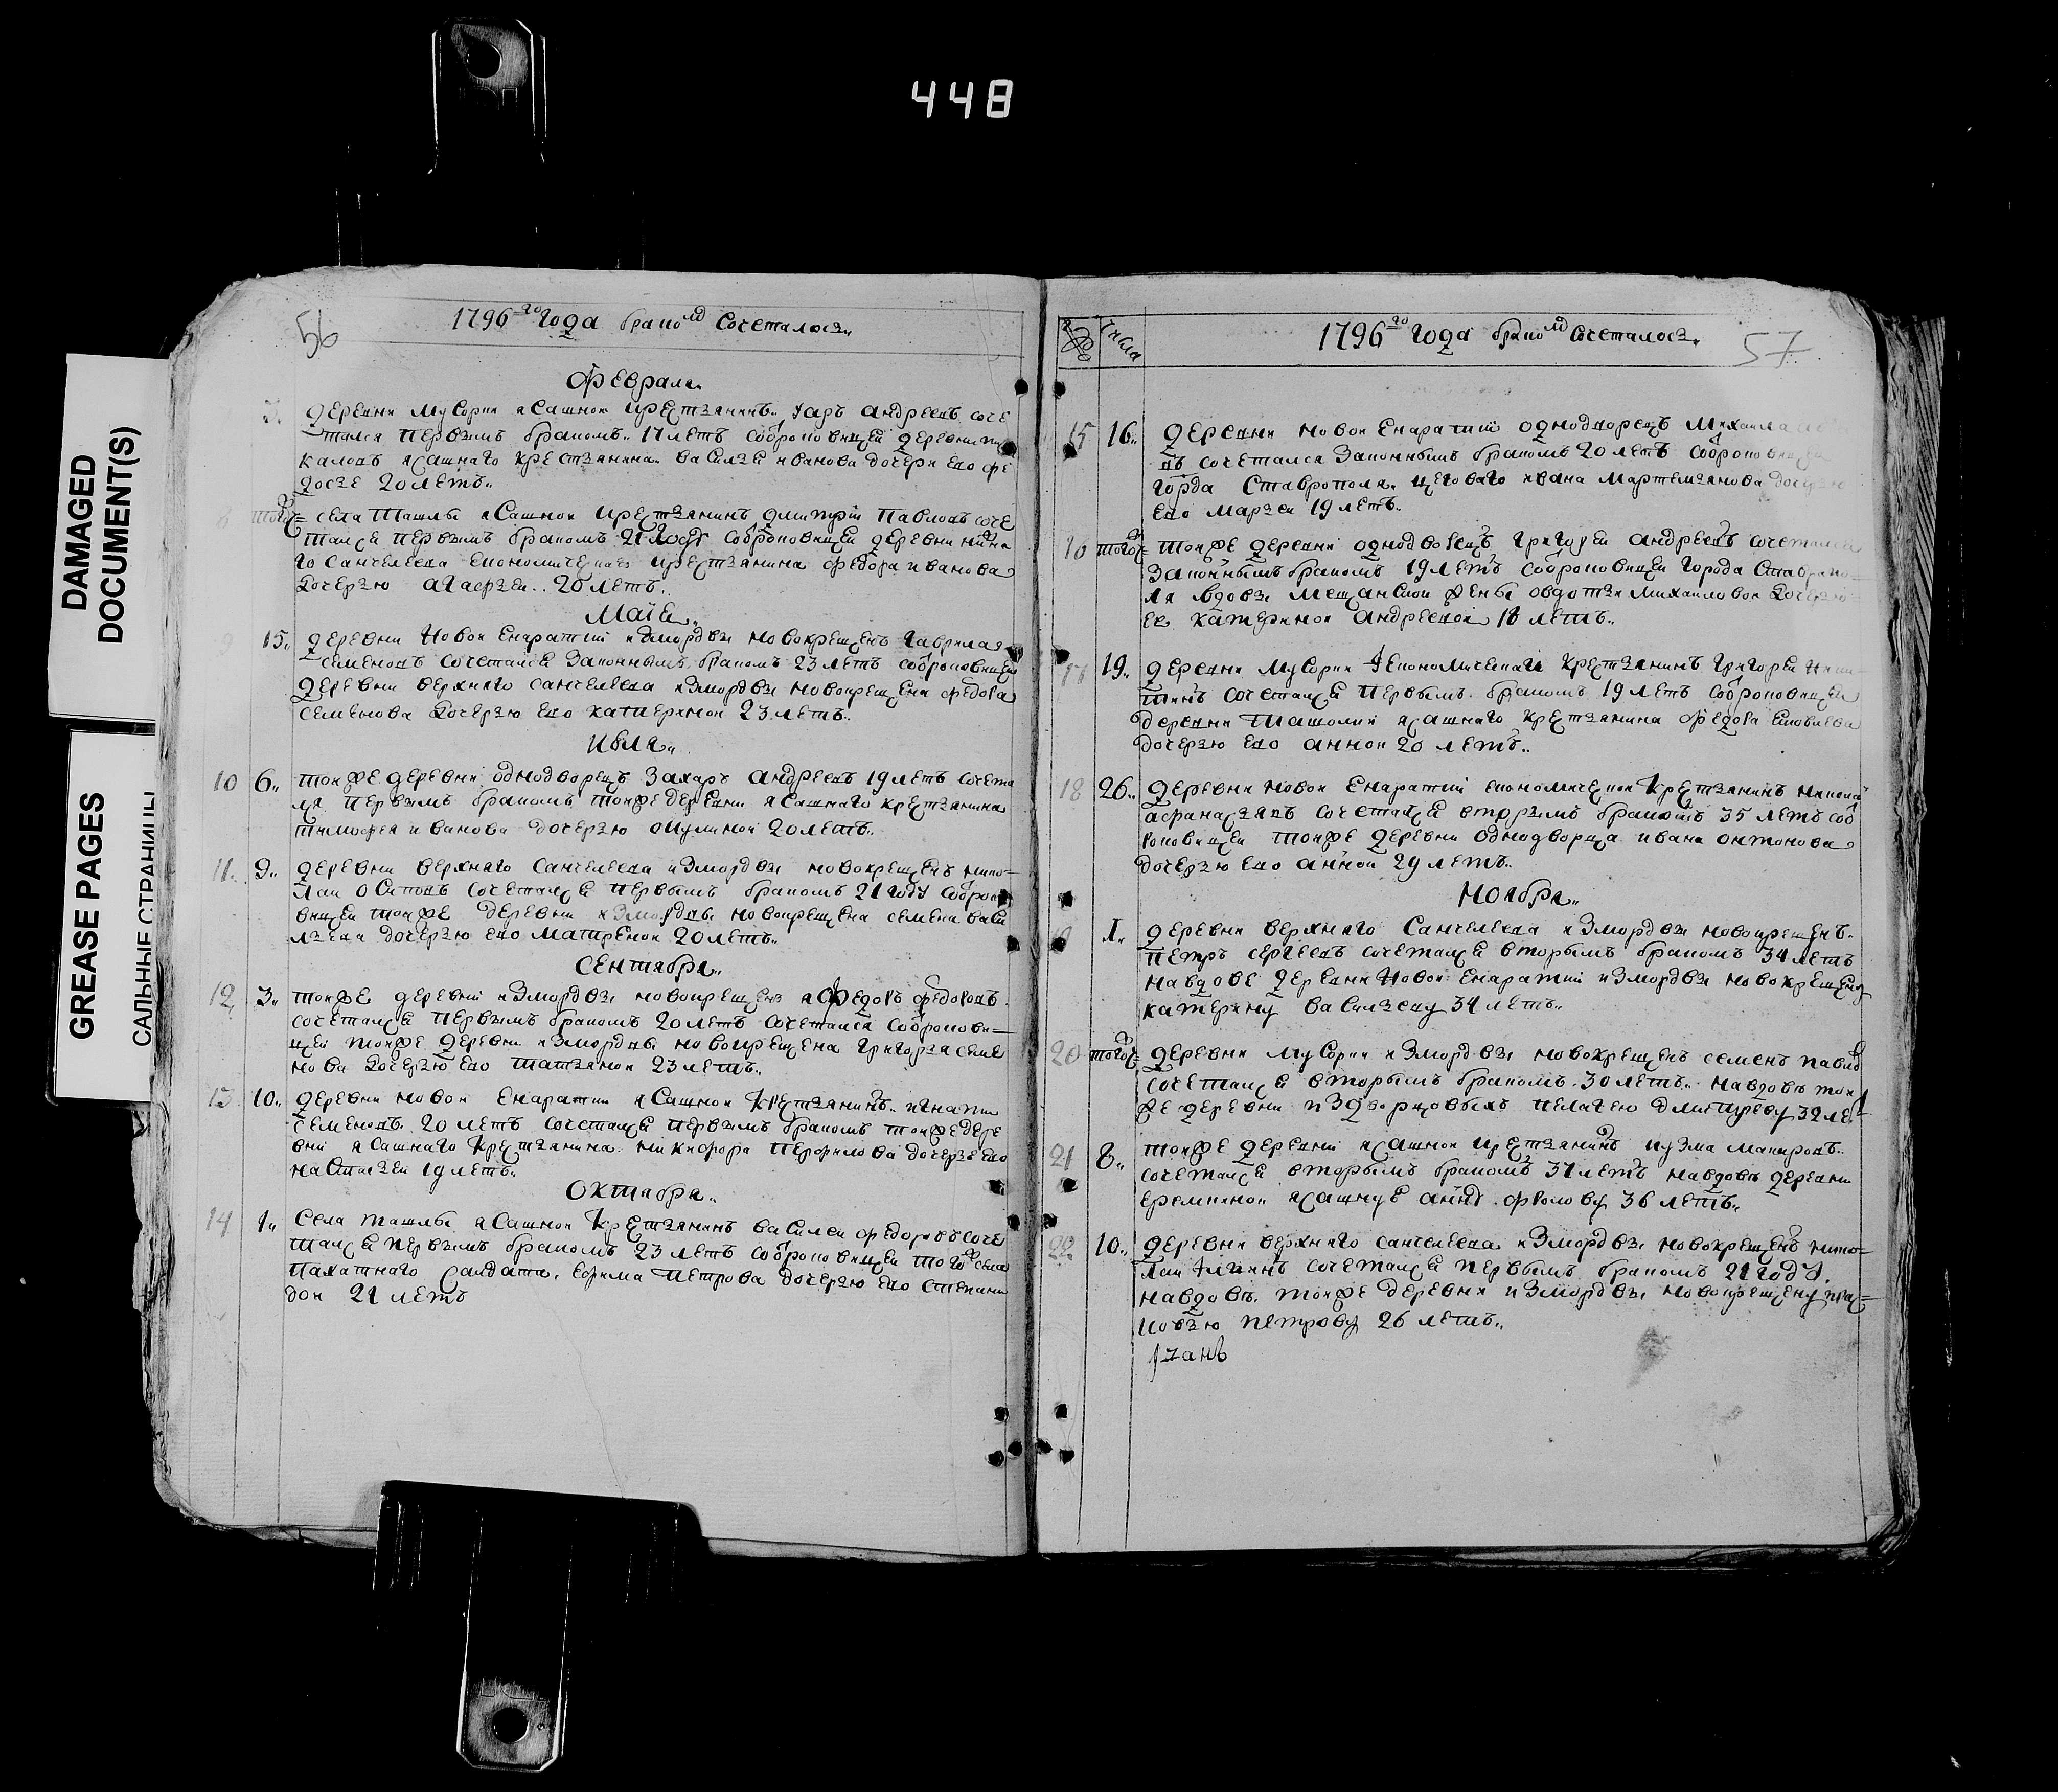 448
DAMAGED
DOCUMENT(S)
GREASE PAGES
САЛЬНЫЕ СТРАНИЦЫ
56
1796го года бракомъ сочеталось
Февраля
деревни Мусорки ясашной крестьянинъ андреевъ соче
тался первымъ бракомъ 17 летъ собрковицей деревни
ясашнаго крестьянина василья иванова дочери ево фе
досье 20 летъ
8 тогож села Ташлы ясашной крестьянинъ дмитрий павловъ соче
тался первымъ бракомъ 21 году собрковицей деревни нижня
го санчелеева економическаго крестьянина федора иванова
дочерью агафьей 20 летъ
Маiя
9 15 деревни Новой Енаратки измордвы новокрещенъ гаврила
семеновъ сочетался законнымъ бракомъ 23 летъ собрковицей
деревни верхняго санчелеева измордвы новокрещена федора
семенова дочерью ево катериной 23 летъ
Июля
10 6 тойже деревни однодворецъ захаръ андреевъ 19 летъ сочета
лся первымъ бракомъ тойже деревни ясашнаго крестьянина
тимофея иванова дочерью окулиной 20 летъ
11 9 деревни верхняго санчелеева измордвы новокрещенъ нико
лай осиповъ сочетался первымъ бракомъ 21 году собрко
вицей тойже деревни измордвы новокрещена семена васи
льева дочерью ево матреной 20 летъ
Сентября
12 3 тойже деревни измордвы новокрещенъ федоръ федоровъ
сочетался первымъ бракомъ 20 летъ сочетался собркови
цей тойже деревни измордвы новокрещена григорья семе
нова дочерью ево татьяной 23 летъ
13 10 деревни новой енаратки ясашной крестьянинъ игнатий
семеновъ 20 летъ сочетался первымъ бракомъ тойже дере
вни ясашнаго крестьянина никифора перфилова дочерью ево
настасьей 19 летъ
Октября
14 1 села ташлы ясашной крестьянинъ василей федоровъ соче
тался первымъ бракомъ 23 летъ собрковицей того села
пахатнаго солдата ефима петрова дочерью ево степани
дой 21 летъ
числа
1796го года бракомъ сочеталось
57
15 16 деревни новой енаратки однодворецъ михаила
въ сочетался законнымъ бракомъ 20 летъ собрковицей
города Ставрополя цеговаго ивана мартемьянова дочерью
ево марьей 19 летъ
16 тогож тойже деревни однодворецъ григорей андреевъ сочетался
законнымъ бракомъ 19 летъ собрковицей города Ставропо
ля вдовы мещанской жены овдотьи михайловой дочерью
ее катериной андреевой 18 летъ
17 19 деревни мусорки економическаго крестьянинъ григорей ники
тинъ сочетался первымъ бракомъ 19 летъ собрковицей
деревни Ташолки ясашнаго крестьянина федора
дочерью ево анной 20 летъ
18 26 деревни новой енаратки економической крестьянинъ никола
афанасьевъ сочетался вторымъ бракомъ 35 летъ соб
рковицей тойже деревни однодворца ивана онтонова
дочерью ево анной 29 летъ
Ноября
1 деревни верхняго санчелеева измордвы новокрещенъ
петръ сергеевъ сочетался вторымъ бракомъ 34 летъ
навдове деревни новой енаратки измордвы новокрещену
катерину васильеву 34 летъ
20 тогож деревни мусорки измордвы новокрещенъ семенъ
сочетался вторымъ бракомъ 30 летъ навдовъ той
же деревни издворцовыхъ пелагею дмитреву 32 ле
21 8 тойже деревни ясашной крестьянинъ кузма макаровъ
сочетался вторымъ бракомъ 37 летъ навдовъ деревни
еремкиной ясашную анну фролову 36 летъ
22 10 деревни верхняго санчелеева измордвы новокрещенъ нико
лай сочетался первымъ бракомъ 21 году
навдовъ тойже деревни измордвы новокрещену прас
ковью петрову 26 летъ